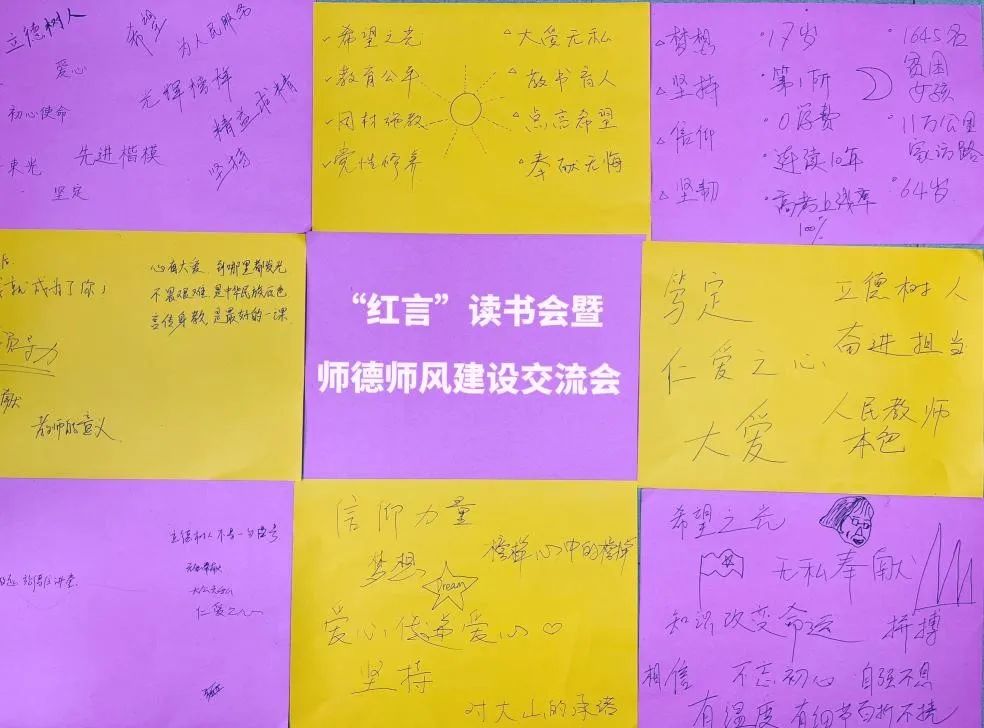 立德树人
希望
为人民服务
爱心
光辉榜样
初心使命
精益求精
先进楷模
坚持
束光
坚定
希望之光
教育公平
因材施教
党性修养
大爱无私
教书育人
点亮希望
奉献无悔
梦想
坚持
信仰
坚韧
17岁
第1所
0学费
连读10年
高考上线率
100%
1645名
贫困
女孩
11万公里
家访路
64岁
就成为了你
心有大爱 到哪里都发光
不畏艰难 是中华民族底色
言传身教 是最好的一课
教师的意义
“红言”读书会暨
师德师风建设交流会
笃定
仁爱之心
大爱
立德树人
奋进担当
人民教师
本色
立德树人不是一句口号
无私奉献
大公无私
仁爱之心
信仰力量
梦想
榜样心中的榜样
Dream
爱心传递爱心
坚持
对大山的承诺
希望之光
无私奉献
知识改变命运
拼搏
相信
不忘初心
自强不息
有温度
有细节
百折不挠